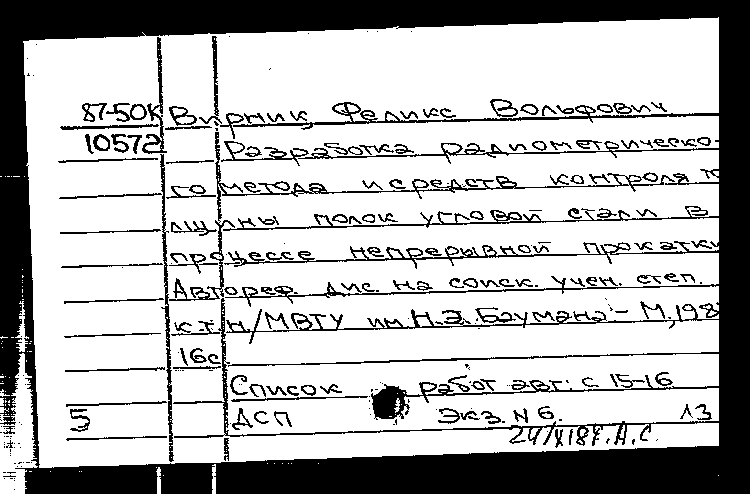 87-50К Вирник, Феликс Вольфович
10572 Разработка радиометрическо-
го метода и средств контроля то
лщины полок угловой стали в
процессе непрерывной прокатки
Автореф дис. на соиск. учен. степ.
к.т.н/МВТУ им. Н.Э. Баумана - М, 198
16с
Список работ авт: с 15-16
5 ДСП Экз. N 6. 13
24/XI87. А.С.